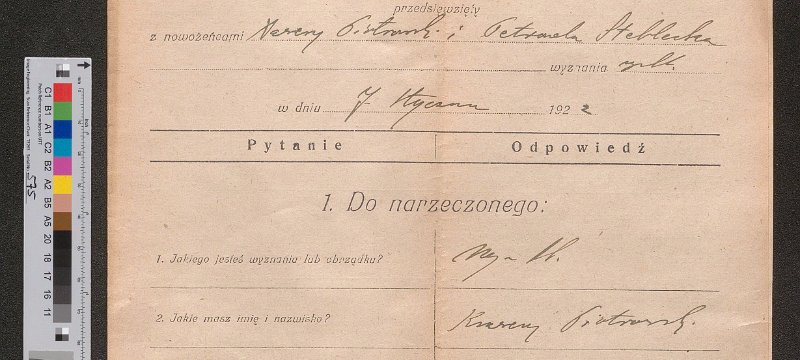 przedsięwzięty
z nowożeńcami Ksawery Piotrowski i Petronela Steblecka
wyznania rz.kt.
w dniu 7 stycznia 1922
Pytanie Odpowiedź
1. Do narzeczonego:
1. Jakiego jesteś wyznania lub obrządku?
2. Jakie masz imię i nazwisko? Ksawery Piotrowski
C1
B1
A1
C2
B2
A2
B5
A5
20
18
17
16
11
575